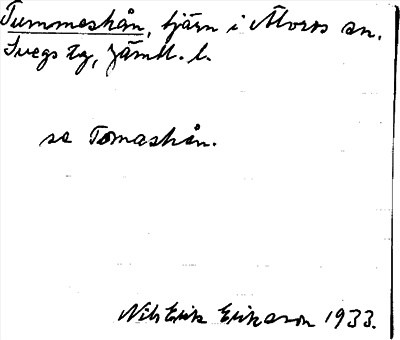 Tummeshån, tjärn i Älvros sn.
Svegs tg, Jämtl. l.
se Tomashån.
Nils Erik Erikson 1933.